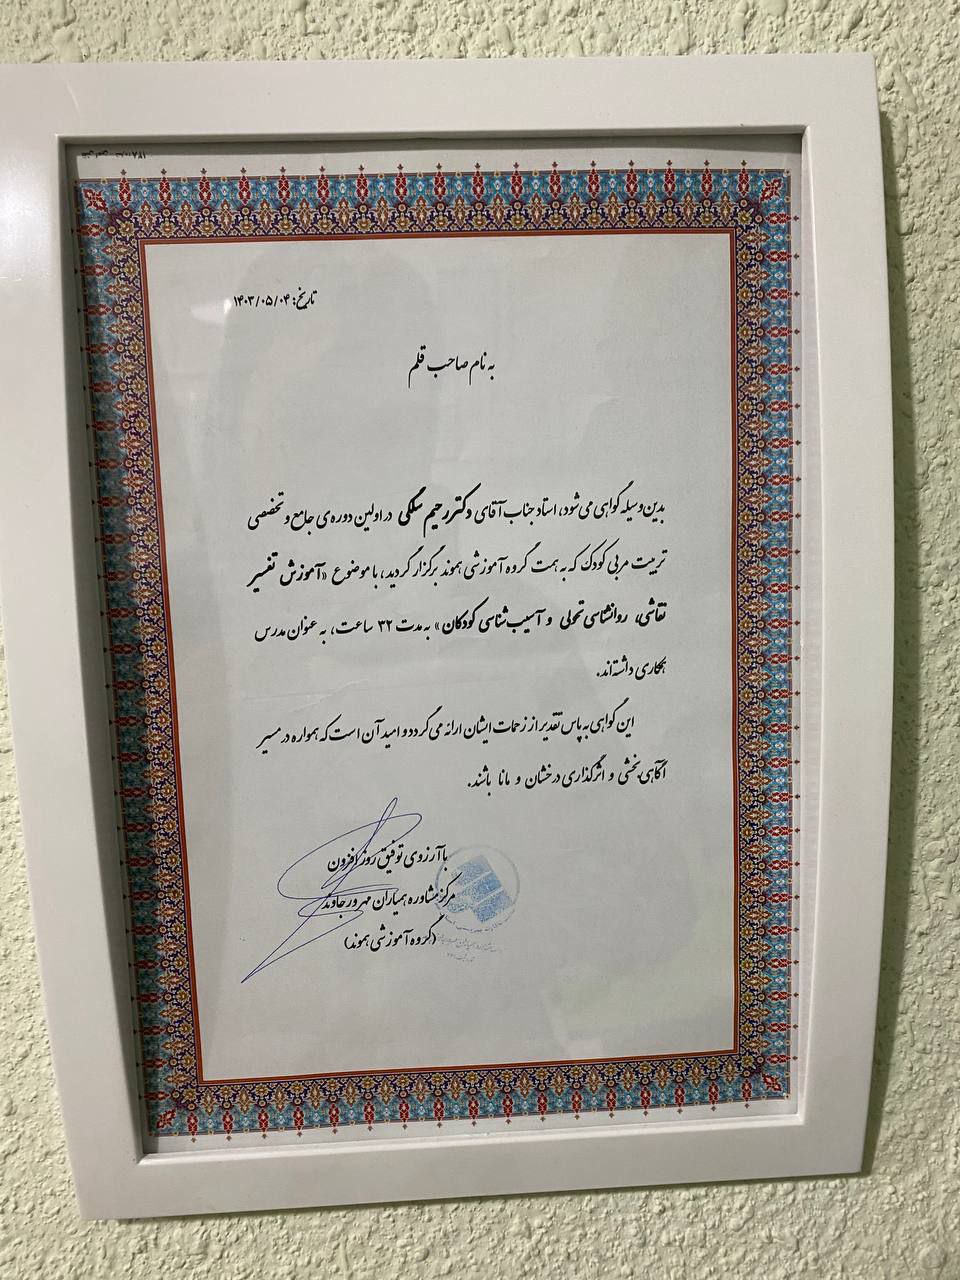 تاریخ: ۱۴۰۳/۰۵/۰۴
به نام صاحب قلم
بدین وسیله گواهی می‌شود، استاد جناب آقای دکتر رحیم سگکی در اولین دوره‌ی جامع و تخصصی
تربیت مربی کودک که به همت گروه آموزشی هموند برگزار گردید، با موضوع «آموزش تفسیر
نقاشی، روانشناسی تحولی و آسیب‌شناسی کودکان» به مدت ۳۲ ساعت، به عنوان مدرس
همکاری داشته‌اند.
این گواهی به پاس تقدیر از زحمات ایشان ارائه می‌گردد و امید آن است که همواره در مسیر
آگاهی‌بخشی و اثرگذاری درخشان و مانا باشند.
با آرزوی توفیق روز افزون
مرکز مشاوره همیاران مهرورجاوند
(گروه آموزشی هموند)